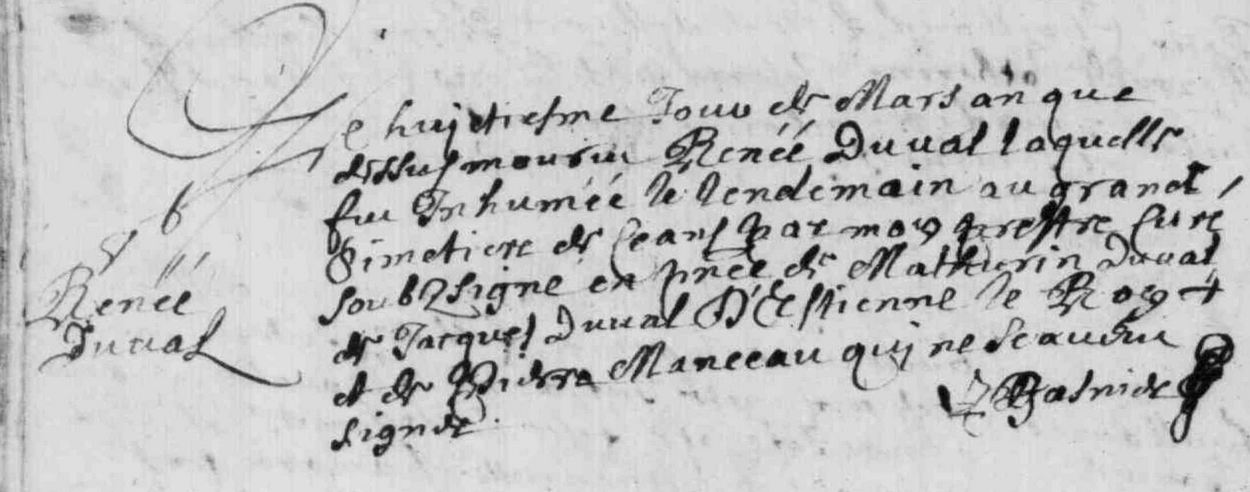 Le huictiesme Jour de Mars an que
dessus mourut Renéé Duval laquelle
fut Inhuméé le lendemain au grand
Simetiere de Ceans par moy prestre Curé
soubzsigné en pnce de Mathurin Duval
de Jacques Duval D'Estienne le Roy
et de Pierre Manceau qui ne scauent
signer
Renéé
Duual